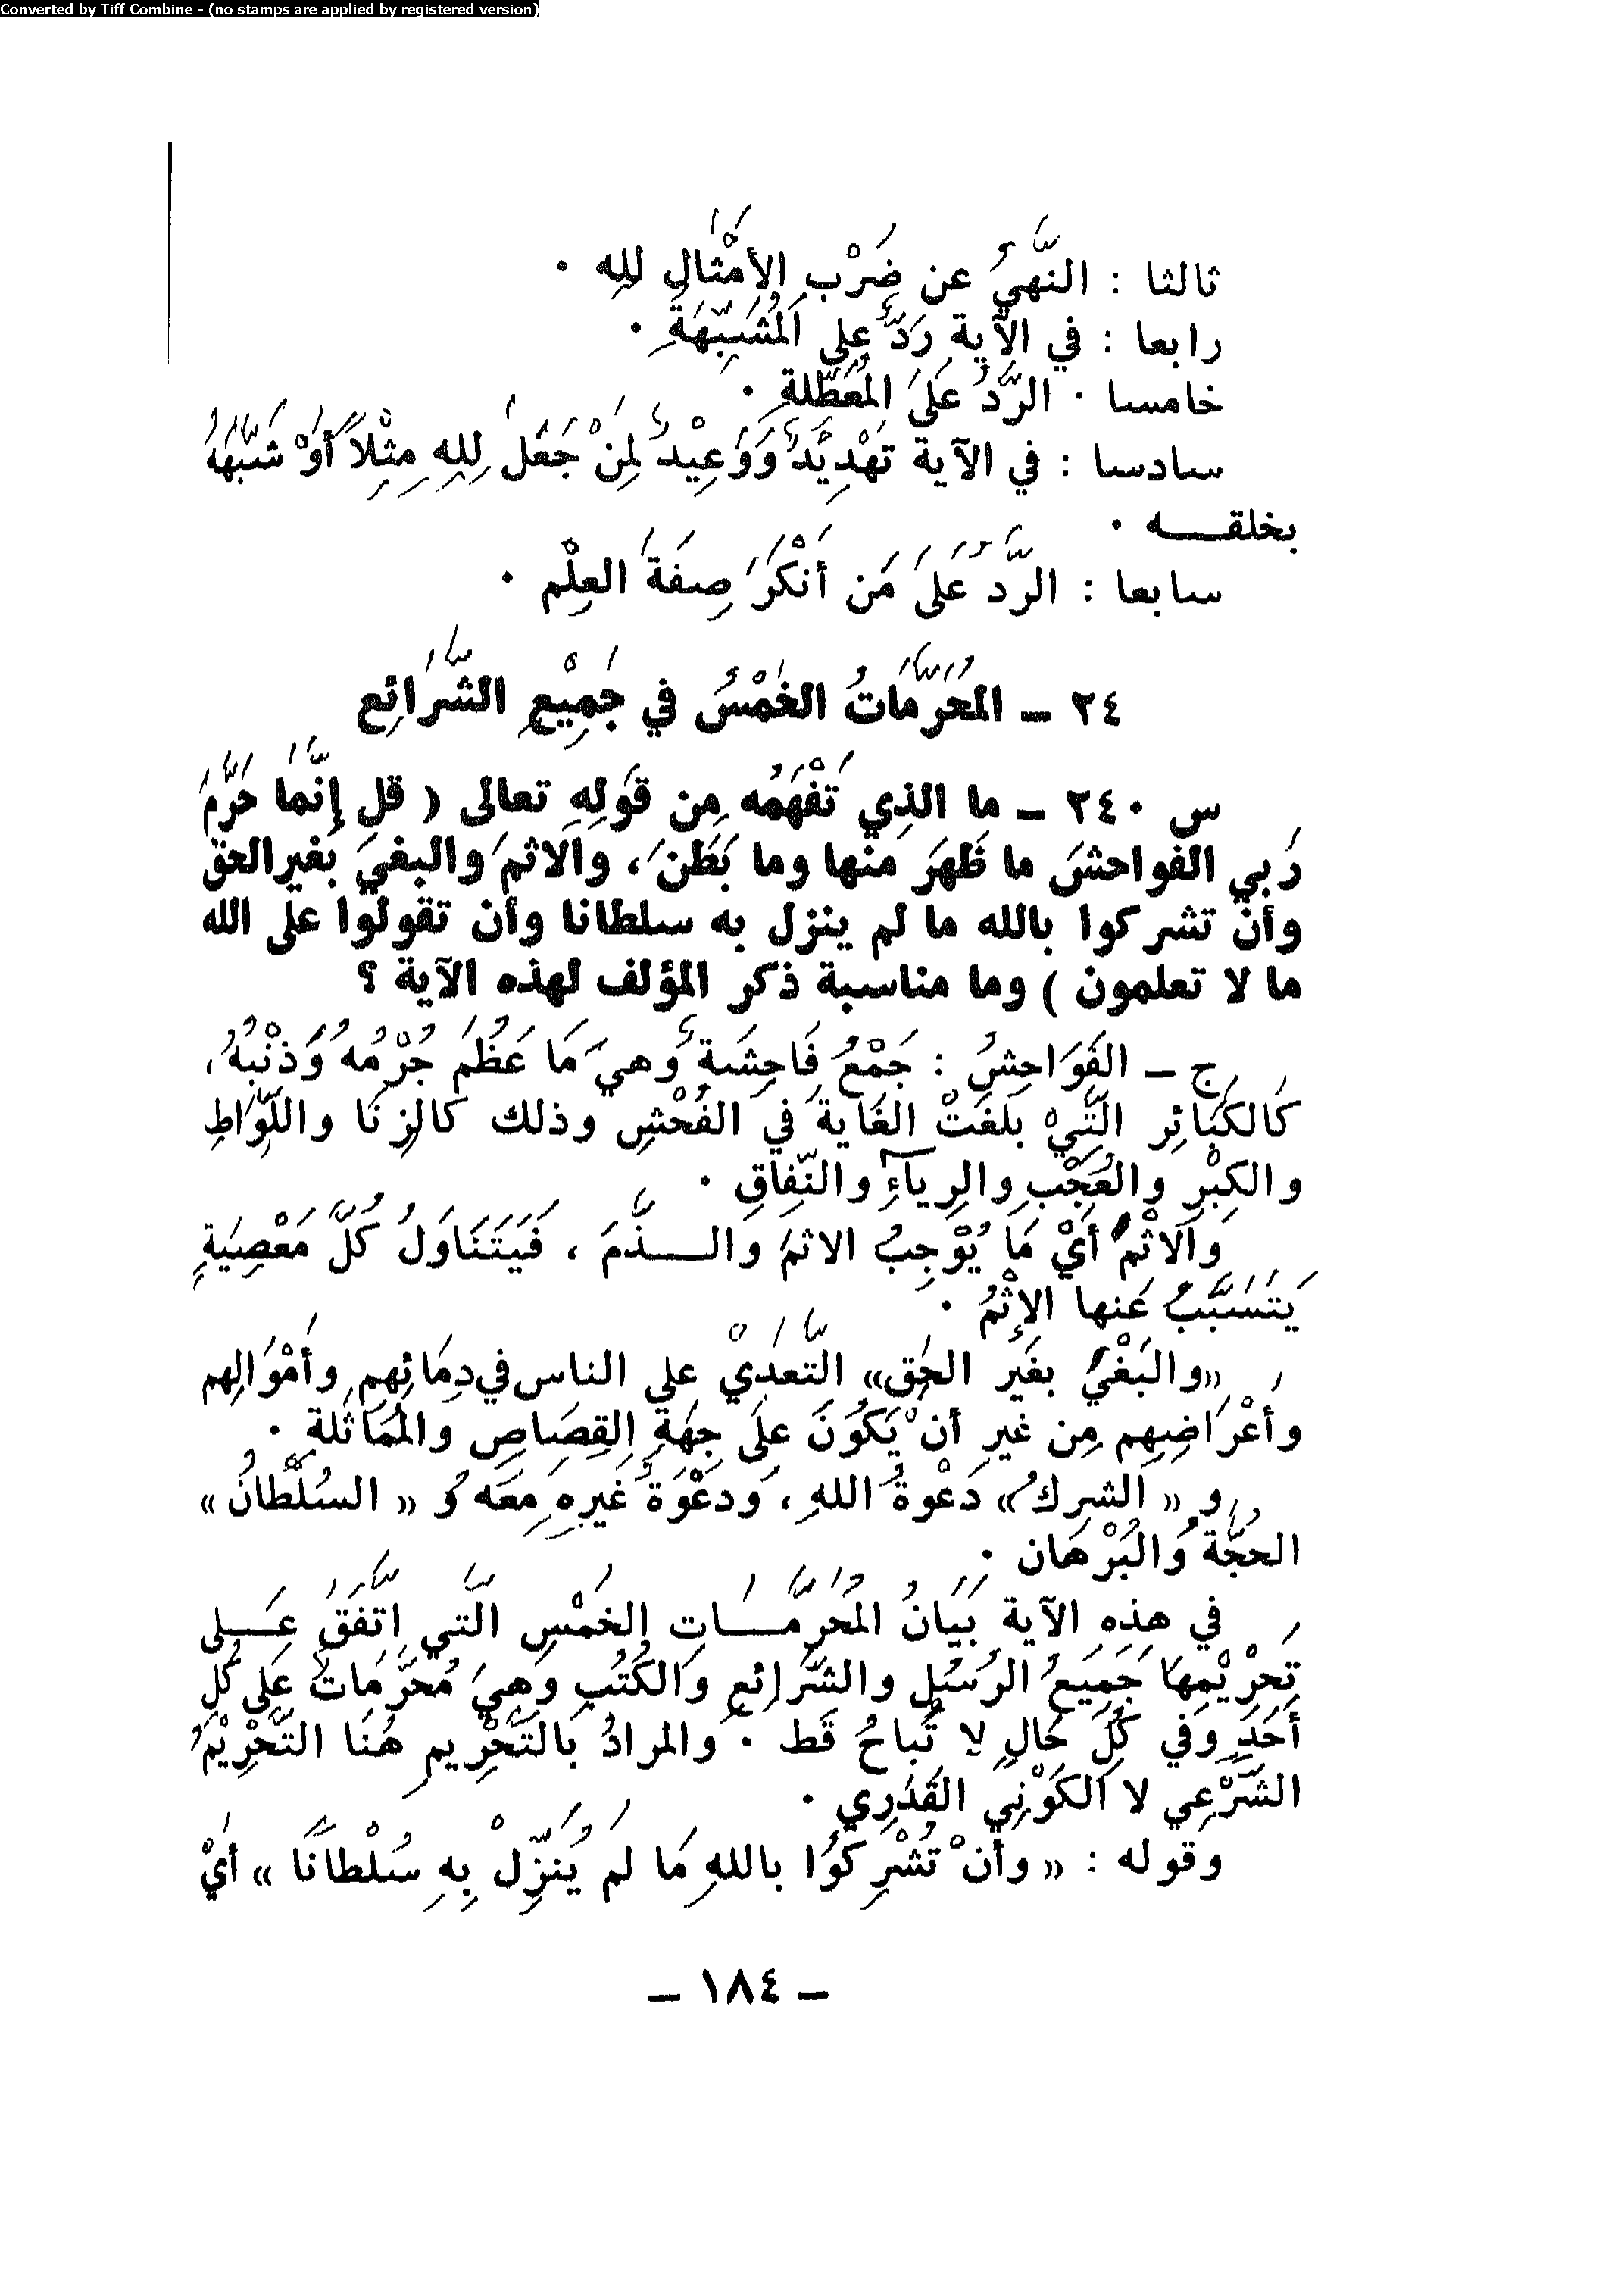 Converted by Tiff Combine - (no stamps are applied by registered version)
ثالثا : النَّهيُ عن ضَرْبِ الأمْثالِ للهِ .
رابعا : في الآيةِ رَدٌّ على المُشَبِّهَةِ .
خامسا . الرَّدُّ عَلَى المُعَطِّلةِ .
سادسا : في الآية تَهْدِيْدٌ وَوَعِيْدٌ لِمَنْ جَعَلَ لِلهِ مِثْلاً أَوْ شَبَّهَهُ
بخلقــه .
سابعا : الرَّدُّ عَلَى مَن أَنْكَرَ صِفَةَ العِلْم .
٢٤ – المُحَرَّمَاتُ الخَمْسُ في جَمِيْعِ الشَّرَائِع
س ٢٤٠ – ما الذِي تَفْهَمُه مِن قَولِهِ تعالى ( قل إنَّمَا حَرَّمَ
رَبي الفواحشَ ما ظَهَرَ منها وما بَطَنَ ، والاثمَ والبغيَ بغيرالحق
وأن تشركوا بالله ما لم ينزل به سلطانا وأن تقولوا على الله
ما لا تعلمون ) وما مناسبة ذكر المؤلف لهذه الآية ؟
ج – الفَوَاحِشُ : جَمْعُ فَاحِشَةٍ وهيَ مَا عَظُمَ جُرْمُهُ وَذنْبُهُ ،
كَالكَبَائِر التَّيْ بَلَغَتْ الغَايةَ في الفُحْشِ وذلك كَالزِنَا واللِّوَاطِ
والكِبْرِ والعُجْبِ والرِياءِ والنِّفاقِ .
وَالاثْمُ أيْ مَا يُوْجِبُ الاثمَ والــذَّمَ ، فَيَتَنَاوَلُ كُلَّ مَعْصِيَةٍ
يَتَسَبَّبُ عَنها الإثْمُ .
«والبَغْيُ بغَيرِ الحَق» التَّعَدِيْ على الناس في دِمَائِهِم وأمْوَالِهم
وأعْرَاضِهِم مِن غيرِ أن يَكُونَ عَلَى جِهَةِ القِصَاصِ والمُمَاثَلة .
و « الشرك» دَعْوةُ اللهِ ، وَدعْوَةُ غَيرِهِ مَعَه وُ « السُلْطانُ »
الحجَّةُ وَالبُرْهَان .
في هذِهِ الآيةِ بَيَانُ المُحَرَّمــاتِ الخمْسِ التَّي اتَّفَقَ عَــلى
تَحرِيْمِهَا جَمِيعُ الرُسُلِ والشَّرَائعِ وَالكُتُبِ وَهِيَ مُحَرَّمَاتٌ عَلى كُلِّ
أَحَدٍ وفي كُلِّ حَالٍ لا تُباحُ قَط . وَالمرادُ بالتَحْرِيم هُنَا التَّحْرِيْمُ
الشَّرْعِي لا الكَوْنِيُ القَدَرِي .
وقوله : « وأنْ تُشْرِكُوْا باللهِ مَا لم يُنَزِّلْ بِهِ سُلْطانًا » أيْ
– ١٨٤ –